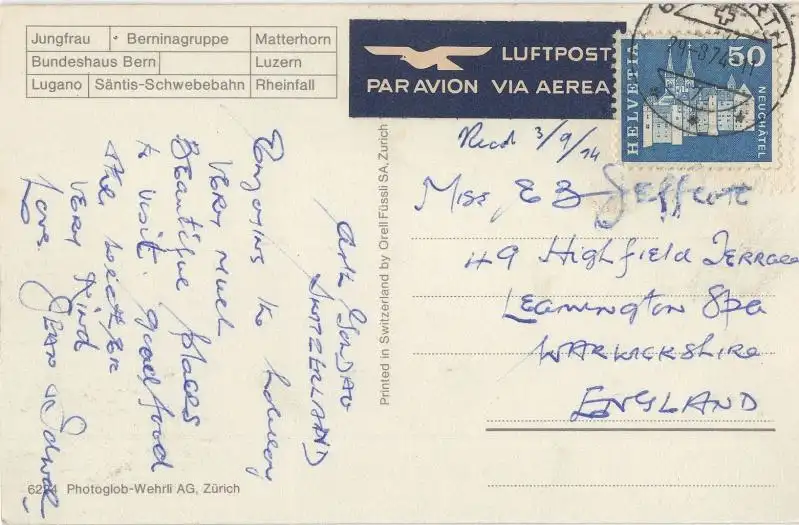 Jungfrau Berninagruppe Matterhorn
Bundeshaus Bern Luzern
Lugano Säntis-Schwebebahn Rheinfall
LUFTPOST
PAR AVION VIA AEREA
HELVETIA 50 NEUCHÂTEL
Recd 3/9/74
Miss E B Jeffcote
49 Highfield Terrace
Leamington Spa
WARWICKSHIRE
ENGLAND
Printed in Switzerland by Orell Füssli SA, Zurich
Arth GOLDAU
SWITZERLAND
Enjoying the holiday
VERY MUCH
Beautiful places
to visit. good food
the weather
VERY kind
Love. JEAN & Edward
Photoglob-Wehrli AG, Zürich